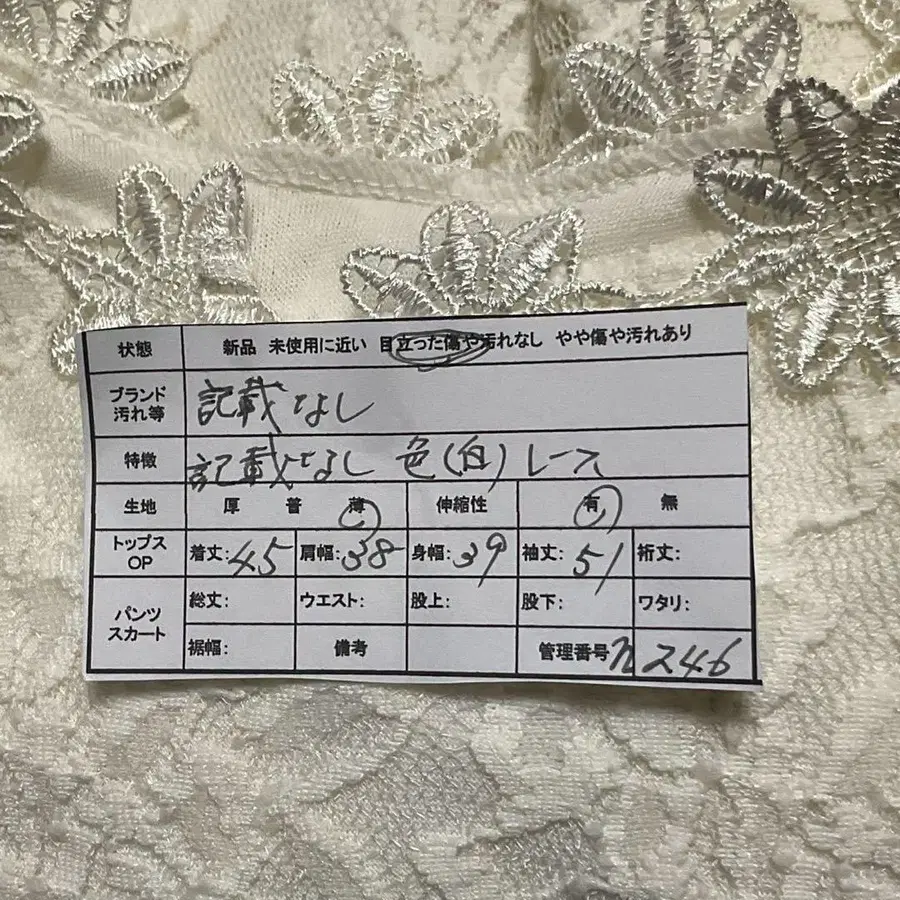 状態 新品 未使用に近い 目立った傷や汚れなし やや傷や汚れあり
ブランド
汚れ等 記載なし
特徴 記載なし 色(白)レース
生地 厚 普 薄 伸縮性 有 無
トップス
OP 着丈:45 肩幅:38 身幅:39 袖丈:51 裄丈:
パンツ
スカート 総丈: ウエスト: 股上: 股下: ワタリ:
裾幅: 備考 管理番号 n246